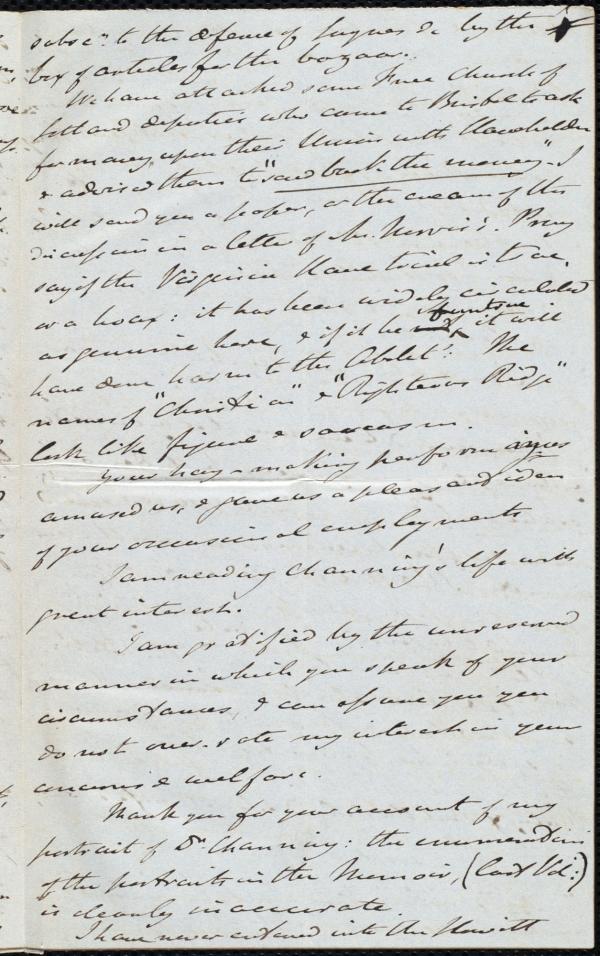 subscn. to the defence of &c by the
box of articles for the bazaar.
We have attacked some Free Church of
Scotland deputies who came to Bristol to ask
for money, upon their Union with slaveholders
& advised them to "send back the money". I
will send you a paper, or the cream of the
discussion in a letter of Mr. Norris's. Pray
say if the Virginia slave trial is true,
or a hoax: it has been widely circulated
as genuine here, & if it be untrue, it will
have done harm to the Abolitn. The
names of "Christian" & "Righteous Ridge"
look like figure & sarcasm.
Your hay-making performances
amused us, & gave us a pleasant idea
of your occasional employments
I am reading Channing's life with
great interest.
I am gratified by the unreserved
manner in which you speak of your
circumstances, & can assure you you
do not over-rate my interest in your
concerns & welfare.
Thank you for your account of my
portrait of Dr. Channing: the enumeration
of the portraits in the Memoir, (last Vol:)
is clearly inaccurate
I have never entered into the Howitt